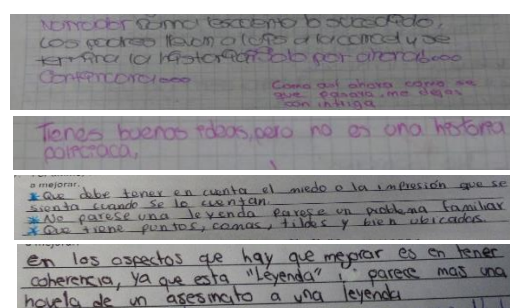 Narrador como les cuento lo sucedido,
los padres llevan a la carcel y se
termina la historia solo por ahora....
Continuara....
Como que ahora como se
que pasara, me dejas
con intriga
Tienes buenas ideas, pero no es una historia
policiaca,
a mejorar.
* Que debe tener en cuenta el miedo o la impresión que se
sienta cuando se lo cuentan.
* No parese una leyenda parese un problema familiar
* Que tiene puntos, comas, tildes y bien ubicados.
en los aspectos que hay que mejorar es en tener
coherencia, ya que esta "Leyenda" parece mas una
novela de un asesinato a una leyenda